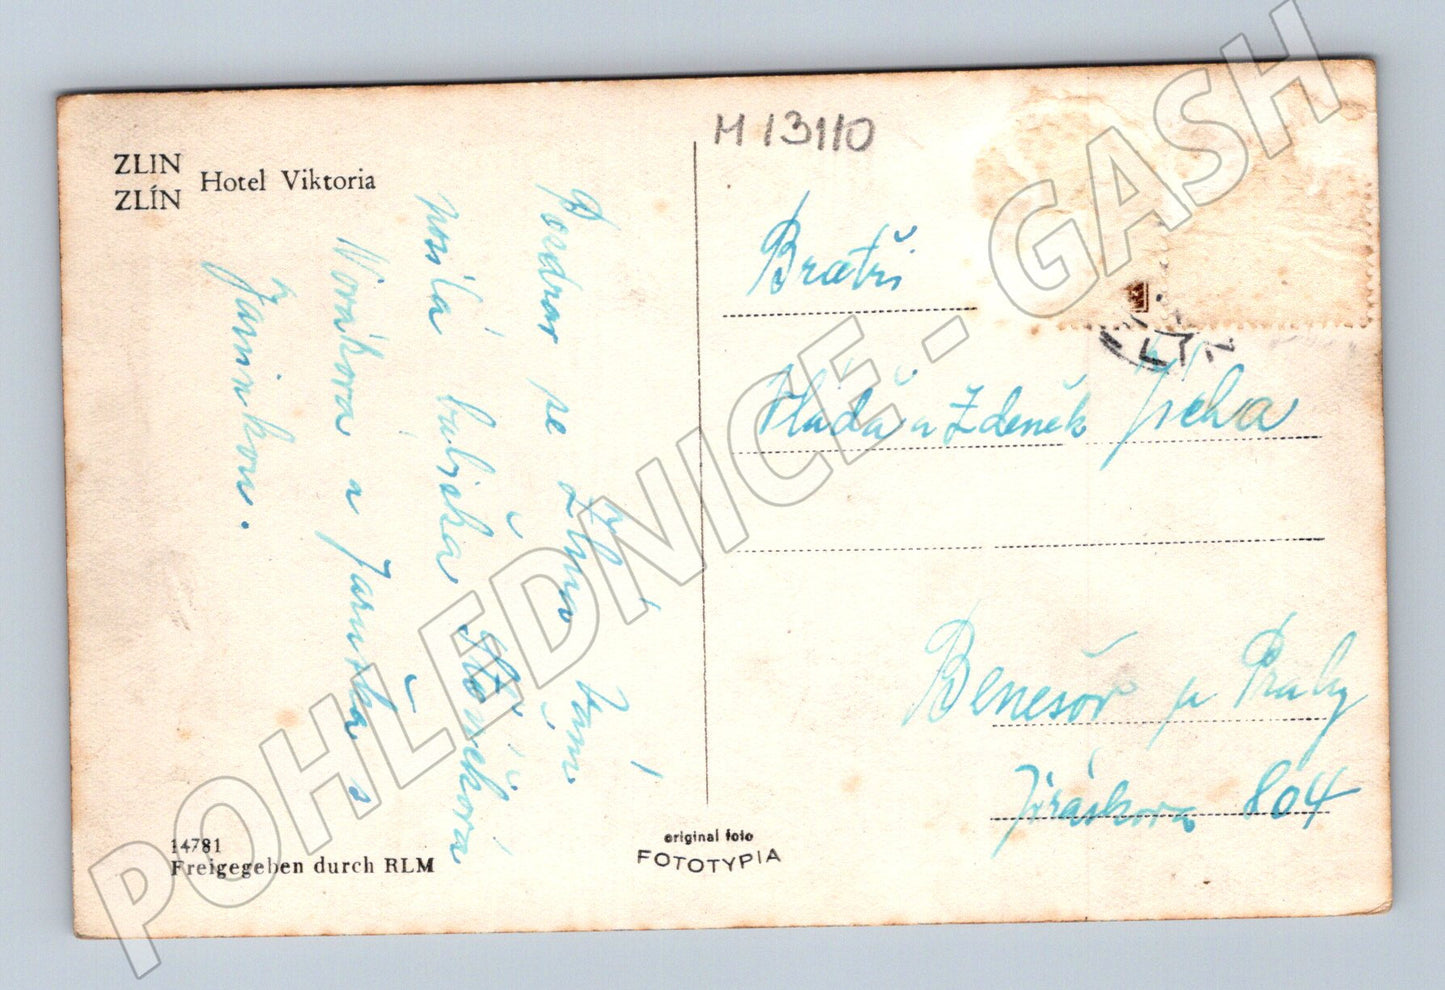 ZLIN
ZLÍN
Hotel Viktoria
M 13110
Pozdrav ze Zlína Vám
posílá babička
Nováková a Jaruška s
Janinkou.
Bratři
Vláďa a Zdeněk Jícha
Benešov u Prahy
Jiráskova 804
14781
Freigegeben durch RLM
original foto
FOTOTYPIA
POHLEDNICE - GASH